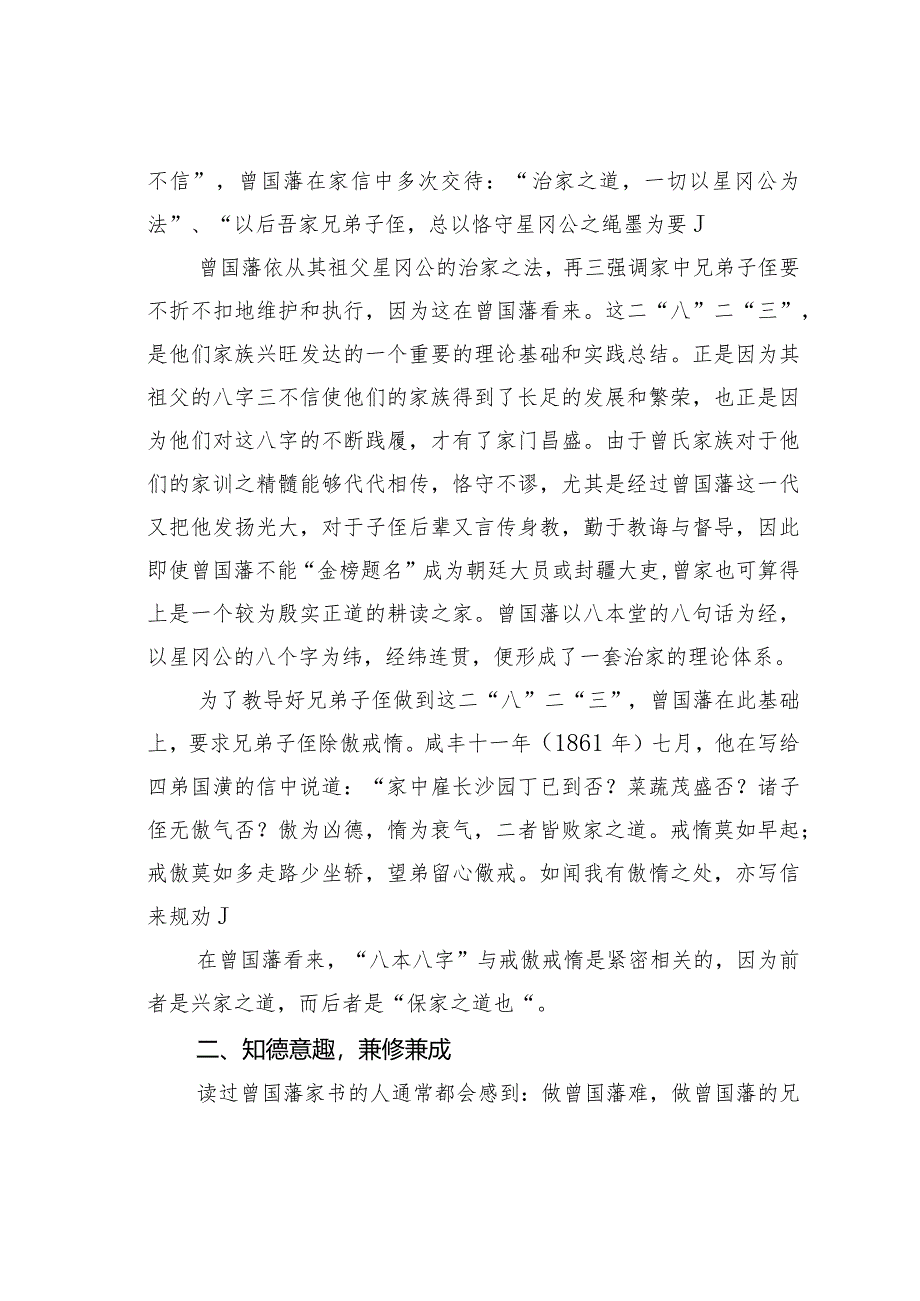 不信”，曾国藩在家信中多次交待：“治家之道，一切以星冈公为
法”、“以后吾家兄弟子侄，总以恪守星冈公之绳墨为要J
曾国藩依从其祖父星冈公的治家之法，再三强调家中兄弟子侄要
不折不扣地维护和执行，因为这在曾国藩看来。这二“八”二“三”，
是他们家族兴旺发达的一个重要的理论基础和实践总结。正是因为其
祖父的八字三不信使他们的家族得到了长足的发展和繁荣，也正是因
为他们对这八字的不断践履，才有了家门昌盛。由于曾氏家族对于他
们的家训之精髓能够代代相传，恪守不谬，尤其是经过曾国藩这一代
又把他发扬光大，对于子侄后辈又言传身教，勤于教诲与督导，因此
即使曾国藩不能“金榜题名”成为朝廷大员或封疆大吏,曾家也可算得
上是一个较为殷实正道的耕读之家。曾国藩以八本堂的八句话为经，
以星冈公的八个字为纬，经纬连贯，便形成了一套治家的理论体系。
为了教导好兄弟子侄做到这二“八”二“三”，曾国藩在此基础
上，要求兄弟子侄除傲戒惰。咸丰十一年（1861年）七月，他在写给
四弟国潢的信中说道：“家中雇长沙园丁已到否？菜蔬茂盛否？诸子
侄无傲气否？傲为凶德，惰为衰气，二者皆败家之道。戒惰莫如早起；
戒傲莫如多走路少坐轿，望弟留心儆戒。如闻我有傲惰之处，亦写信
来规劝J
在曾国藩看来，“八本八字”与戒傲戒惰是紧密相关的，因为前
者是兴家之道，而后者是“保家之道也“。
二、知德意趣，兼修兼成
读过曾国藩家书的人通常都会感到：做曾国藩难，做曾国藩的兄